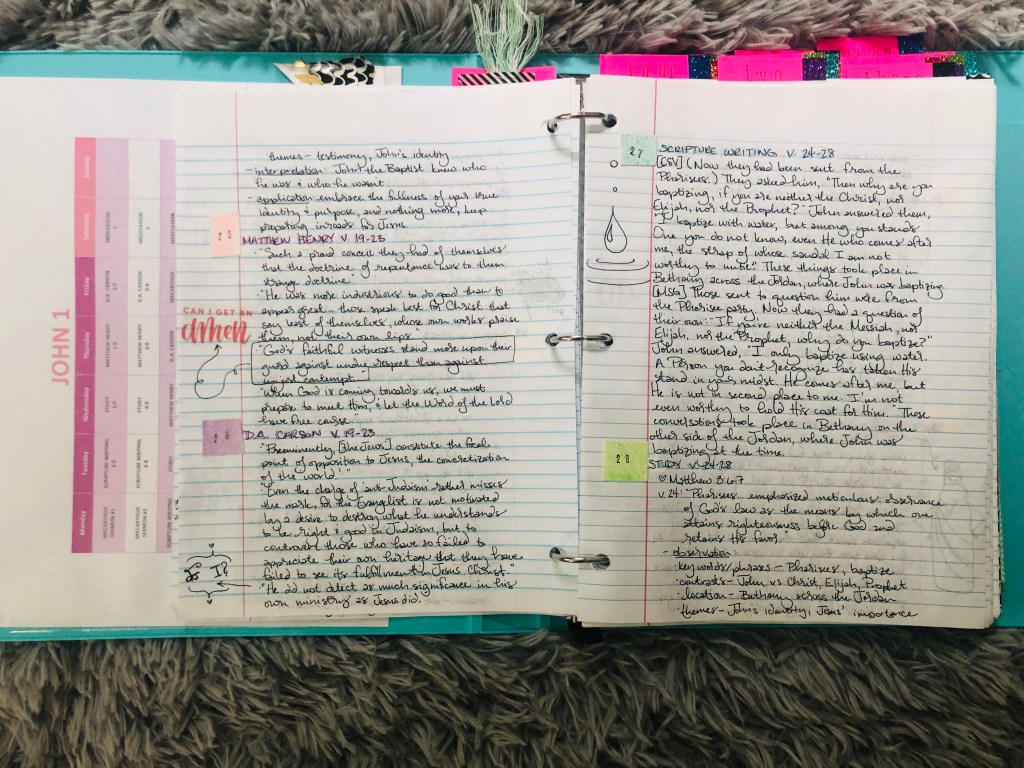 JOHN 1
Sunday
Saturday
MEDITATION
MEDITATION
MEDITATION
Friday
D.A. CARSON
D.A. CARSON
Thursday
MATTHEW HENRY
MATTHEW HENRY
D.A. CARSON
Wednesday
STUDY
STUDY
MATTHEW HENRY
Tuesday
SCRIPTURE WRITING
SCRIPTURE WRITING
STUDY
Monday
MACARTHUR
SERMON #1
MACARTHUR
SERMON #2
SCRIPTURE WRITING
themes - testimony, John's identity
- interpretation: John the Baptist knew who
he was & who he wasn't
- application: embrace the fullness of your true
identity & purpose, and nothing more, keep
preparing inroads for Jesus.
25
MATTHEW HENRY V. 19-23
"Such a proud conceit they had of themselves
that the doctrine of repentance was to them
strange doctrine."
"He was more industrious to do good than to
appear great... those speak best for Christ that
say least of themselves, whose own works praise
them, not their own lips."
CAN I GET AN
amen
"God's faithful witnesses stand more upon their
guard against undue respect than against
unjust contempt."
"When God is coming towards us, we must
prepare to meet Him, & let the Word of the Lord
have free course."
26
D.A. CARSON V. 19-23
"Preeminently, [the Jews] constitute the focal
point of opposition to Jesus, the concretization
of 'the world'."
"Even the charge of 'anti-Judaism' rather misses
the mark, for the Evangelist is not motivated
by a desire to destroy what he understands
to be right & good in Judaism, but to
controvert those who have so failed to
appreciate their own heritage that they have
failed to see its fulfillment in Jesus Christ."
Do I?
"He did not detect as much significance in his
own ministry as Jesus did.
two
27
SCRIPTURE WRITING V. 24-28
[ESV] (Now they had been sent from the
Pharisees.) They asked him, "Then why are you
baptizing, if you are neither the Christ, nor
Elijah, nor the Prophet?" John answered them,
"I baptize with water, but among you stands
One you do not know, even He who comes after
me, the strap of whose sandal I am not
worthy to untie." These things took place in
Bethany across the Jordan, where John was baptizing.
[MSG] Those sent to question him were from
the Pharisee party. Now they had a question of
their own: "If you're neither the Messiah, nor
Elijah, nor the Prophet, why do you baptize?"
John answered, "I only baptize using water.
A Person you don't recognize has taken His
stand in your midst. He comes after me, but
He is not in second place to me. I'm not
even worthy to hold His coat for Him." Those
conversations took place in Bethany on the
other side of the Jordan, where John was
baptizing at the time.
28
STUDY V. 24-28
♡ Matthew 3:6-7
v. 24: "Pharisees... emphasized meticulous observance
of God's law as the means by which one
attains righteousness before God and
retains His favor."
- observation:
keywords/phrases - Pharisees, baptize
contrasts - John vs Christ, Elijah, Prophet
location - Bethany across the Jordan
themes - John's identity, Jesus' importance